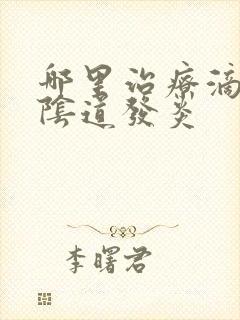 哪里治療滴
陰道發炎
李曙君